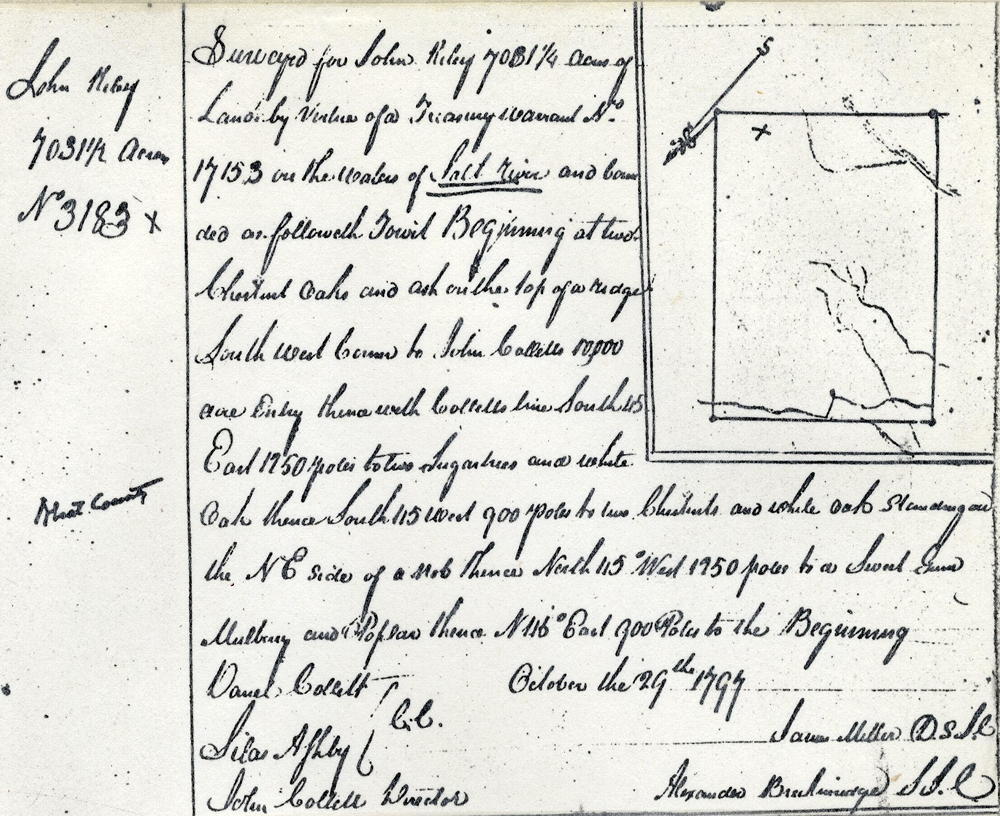 John Riley
7031 1/2 Acres
No 3183 x
Survayd for John Riley 7031 1/4 Acres of
Land by Virtue of a Treasury warrant No.
17153 on the waters of Salt River and boun
ded as followeth Towit Beginning at two
Chestnut Oaks and ash on the top of a ridge
South west Corner to John Colletts 10,000
acre Entry thence with Colletts line South 45
East 1250 poles to two Sugartrees and white
Oak thence South 45 west 900 poles to two Chestnuts and white oak Standing on
the NE side of a nob thence North 45° West 1250 poles to a Sweet Gum
Mulberry and Poplar thence N 45° East 900 Poles to the Beginning
Daniel Collett
October the 29th 1797
C.C.
Silas Ashby
James Miller D.S.
John Collett Director
Alexander Breckinridge
S
x
County